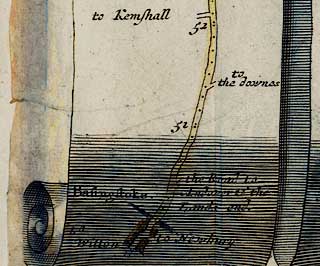 to Kemshall
52
to
the downes
51
the Road to
Basingstoke
the
Lands end
to
Wilton
to Newbury